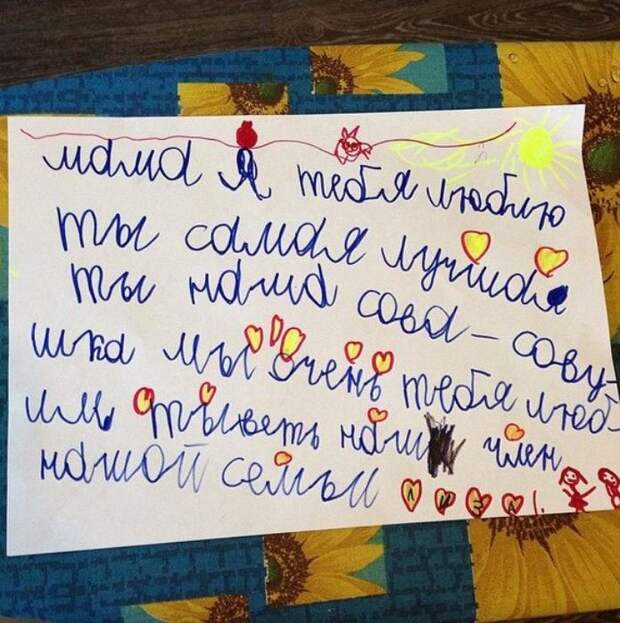 мама я тебя люблю
ты самая лучшая
ты наша сова-сову-
шка мы очень тебя люб-
им тыветь наш член
нашой семьи лиза!